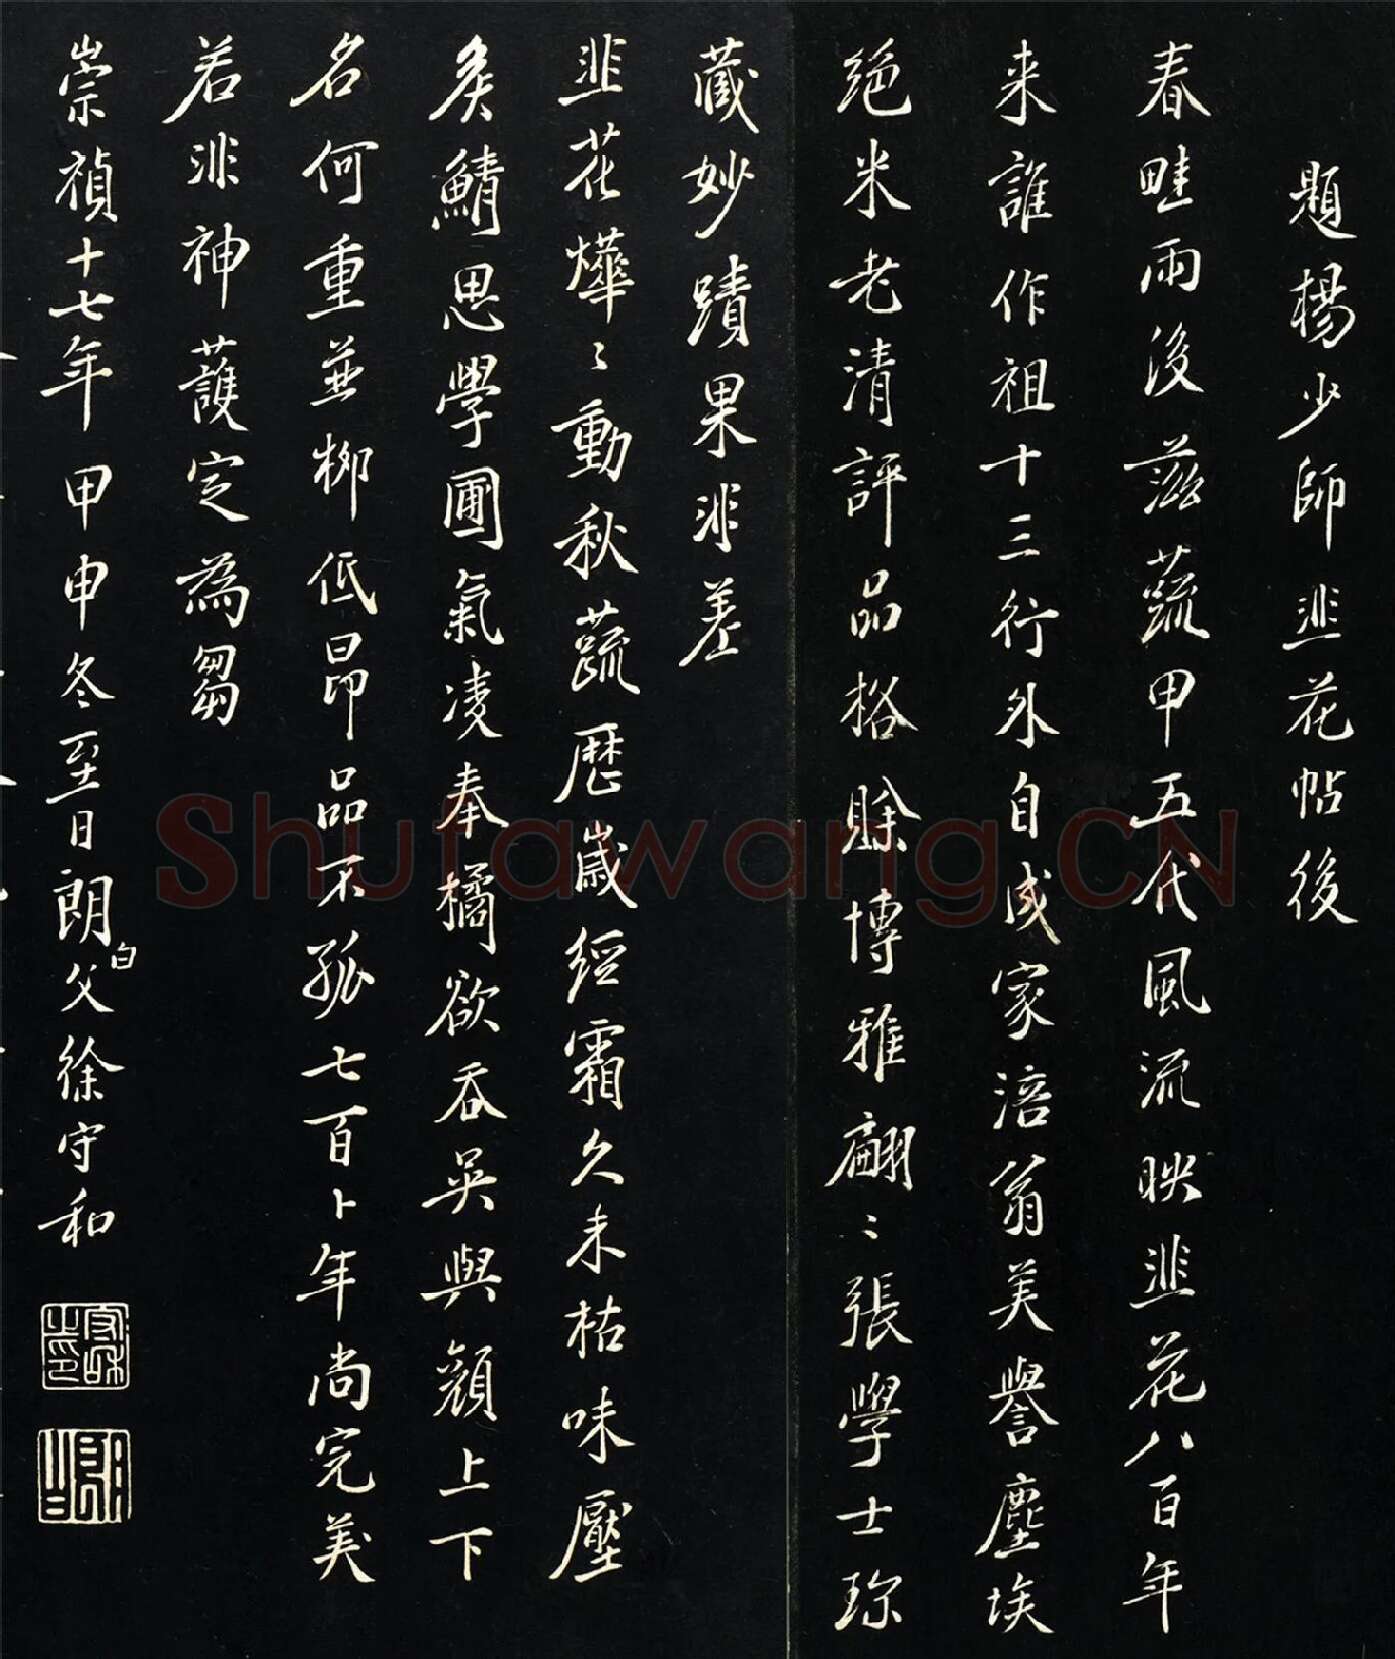 題楊少師韭花帖後
春畦雨後茲蔬甲五代風流映韭花八百年
来誰作祖十三行外自成家涪翁美譽塵埃
絕米老清評品格賖博雅翩〻張學士珎
藏妙蹟果非差
韭花燁〻動秋蔬歷歲經霜久未枯味壓
矦鯖思學圃氣凌奉橘欲吞吳與顔上下
名何重並栁低昂品不孤七百卜年尚完美
若非神護定為芻
崇禎十七年甲申冬至日朗白父徐守和
守和之印
朗白
Shufawang.CN